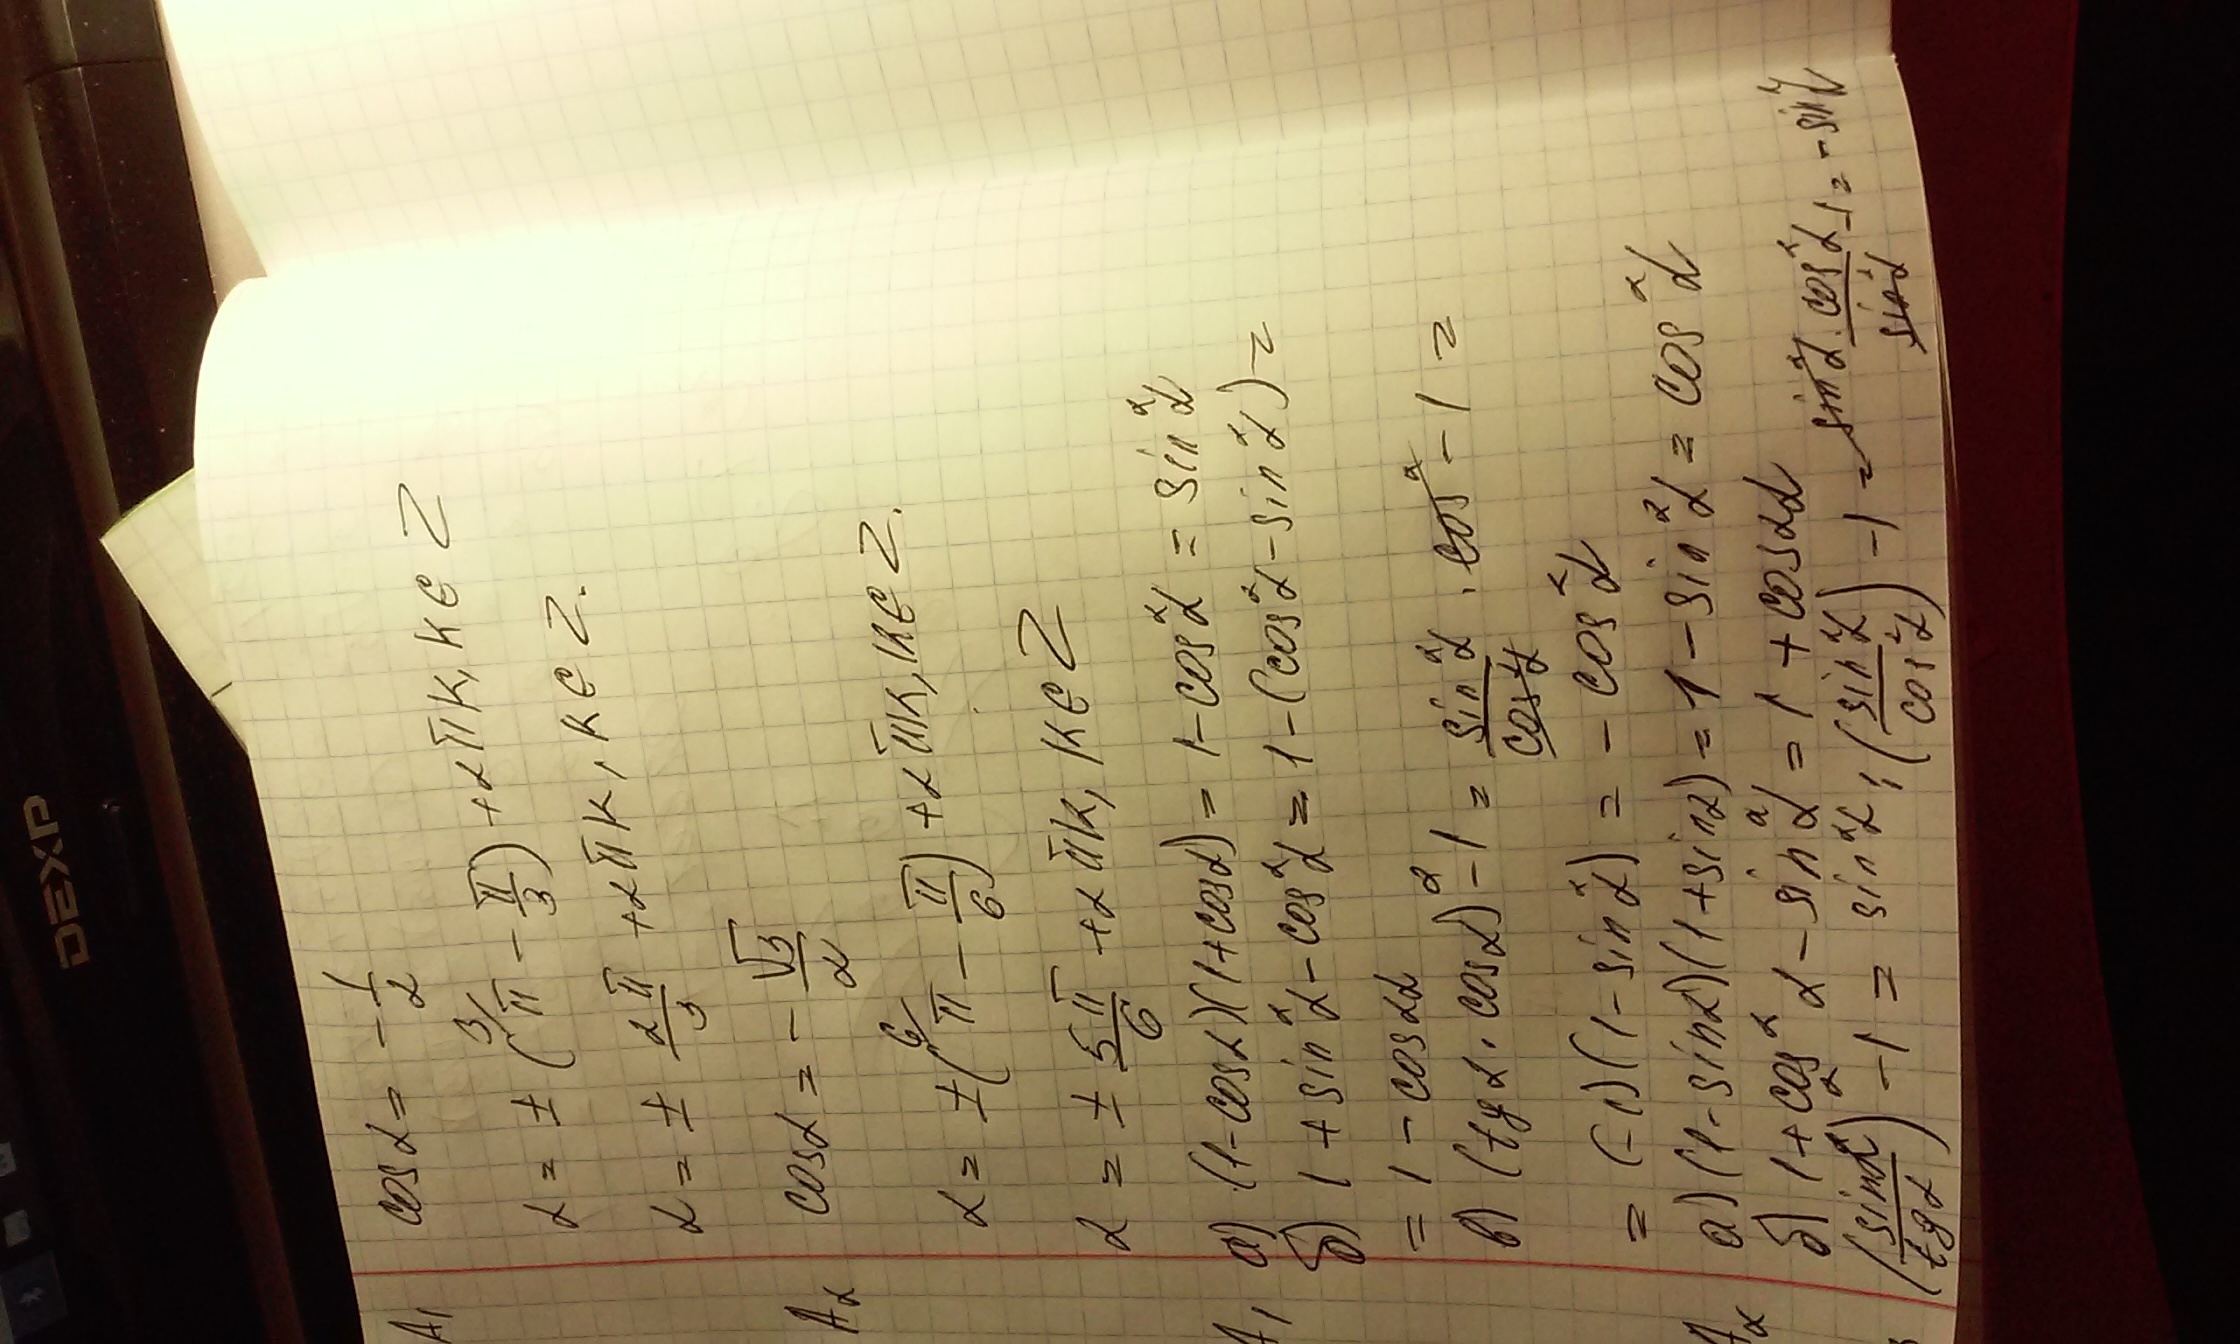 DEXP
A1 cosα = -1/2
α = ±(π³⁄ - π/3) + 2πk, k∈Z
α = ± 2π/3 + 2πk, k∈Z.
A2 cosα = -√3/2
α = ±(π⁶⁄ - π/6) + 2πk, k∈Z.
α = ± 5π/6 + 2πk, k∈Z
A1 а) (1-cosα)(1+cosα) = 1-cos²α = sin²α
б) 1+sin²α-cos²α = 1-(cos²α-sin²α) =
= 1-cos2α
в) (tgα·cosα)²-1 = sin²α/cos²α · cos²-1 =
= (-1)(1-sin²α) = -cos²α
A2 а) (1-sinα)(1+sinα) = 1-sin²α = cos²α
б) 1+cos²α-sin²α = 1+cos2α
(sinα/tgα)²-1 = sin²α : (sin²α/cos²α) -1 = sin²α · cos²α/sin²α -1 = -sin²α